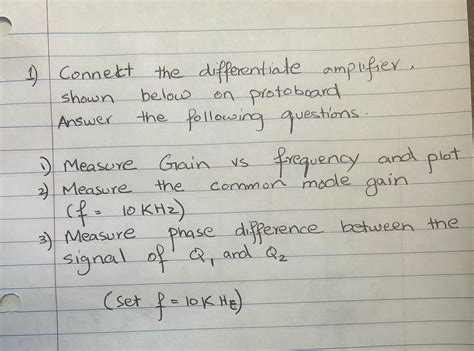 1) Connekt the differentiate amplifier.
shown below on protoboard
Answer the following questions.
1) Measure Gain vs frequency and plot
2) Measure the common mode gain
(f = 10 KHz)
3) Measure phase difference between the
signal of Q1 and Q2
(set f = 10K Hz)